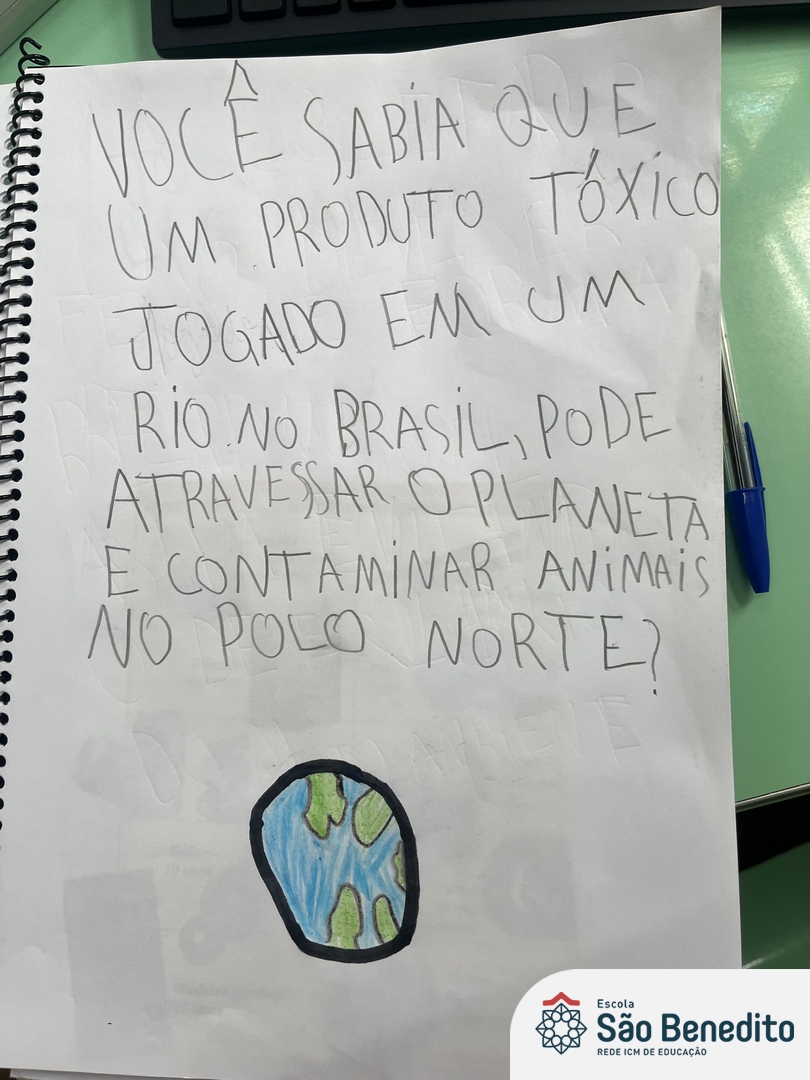 VOCÊ SABIA QUE
UM PRODUTO TÓXICO
JOGADO EM UM
RIO NO BRASIL, PODE
ATRAVESSAR O PLANETA
E CONTAMINAR ANIMAIS
NO POLO NORTE?
Escola
São Benedito
REDE ICM DE EDUCAÇÃO